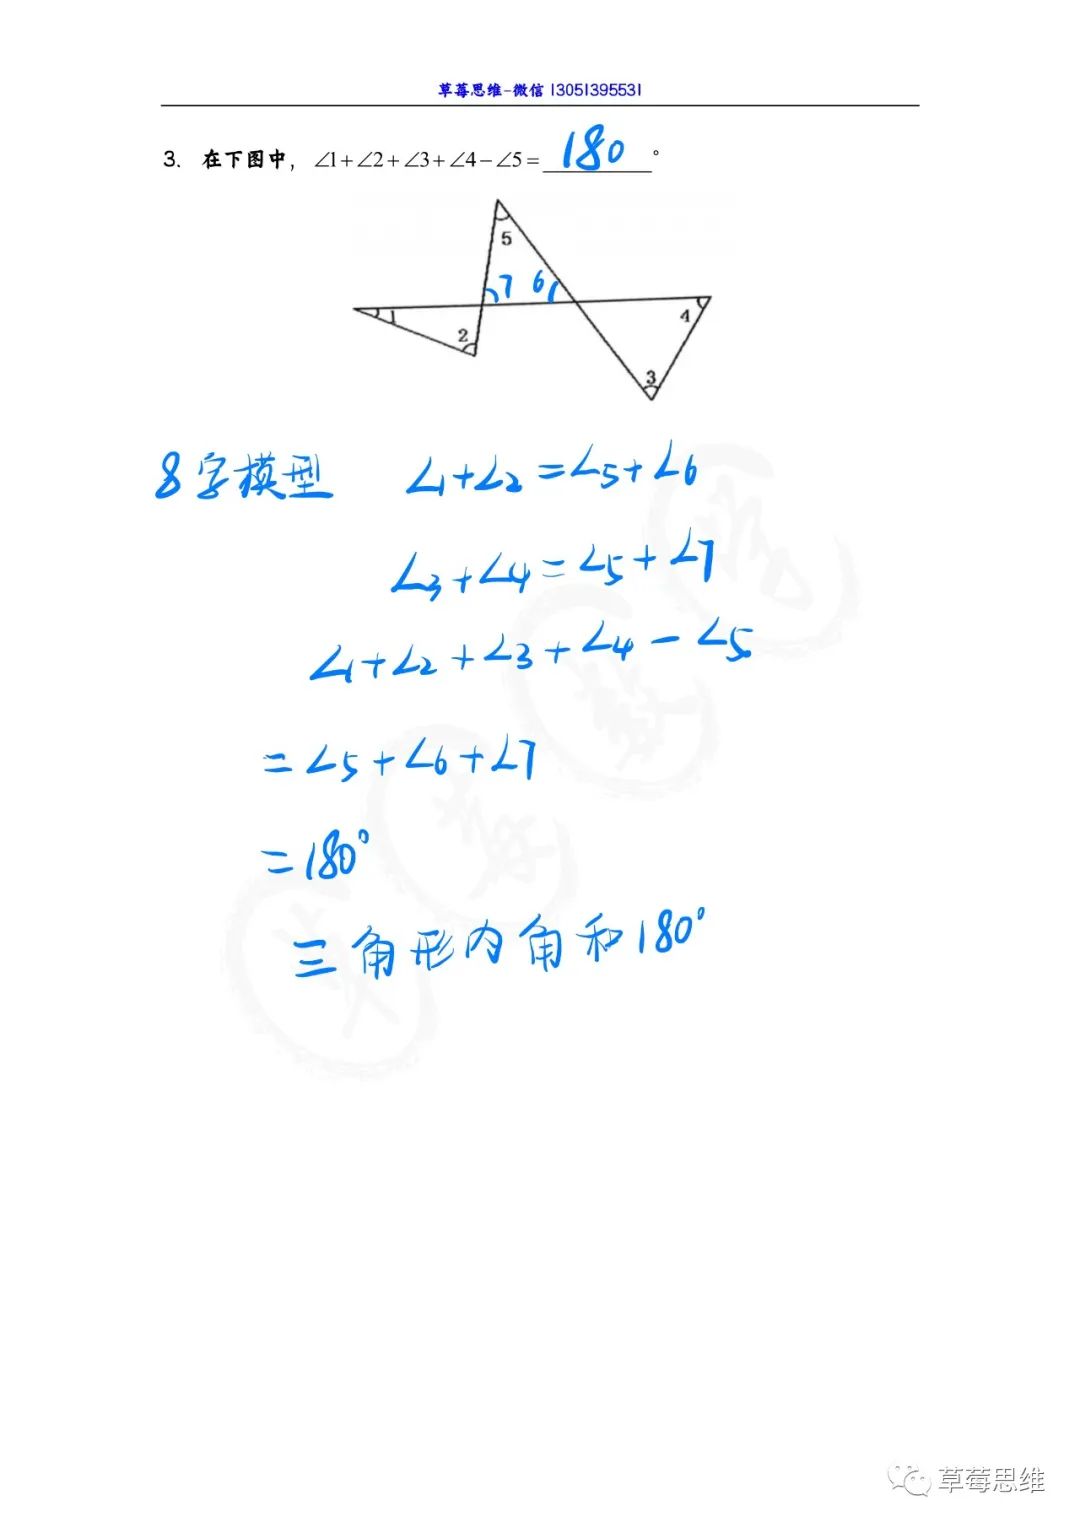 草莓思维-微信 13051395531
3. 在下图中，∠1+∠2+∠3+∠4−∠5= 180 °
5
7 6
1
2
4
3
8字模型 ∠1+∠2=∠5+∠6
∠3+∠4=∠5+∠7
∠1+∠2+∠3+∠4−∠5
=∠5+∠6+∠7
=180°
三角形内角和180°
草莓思维